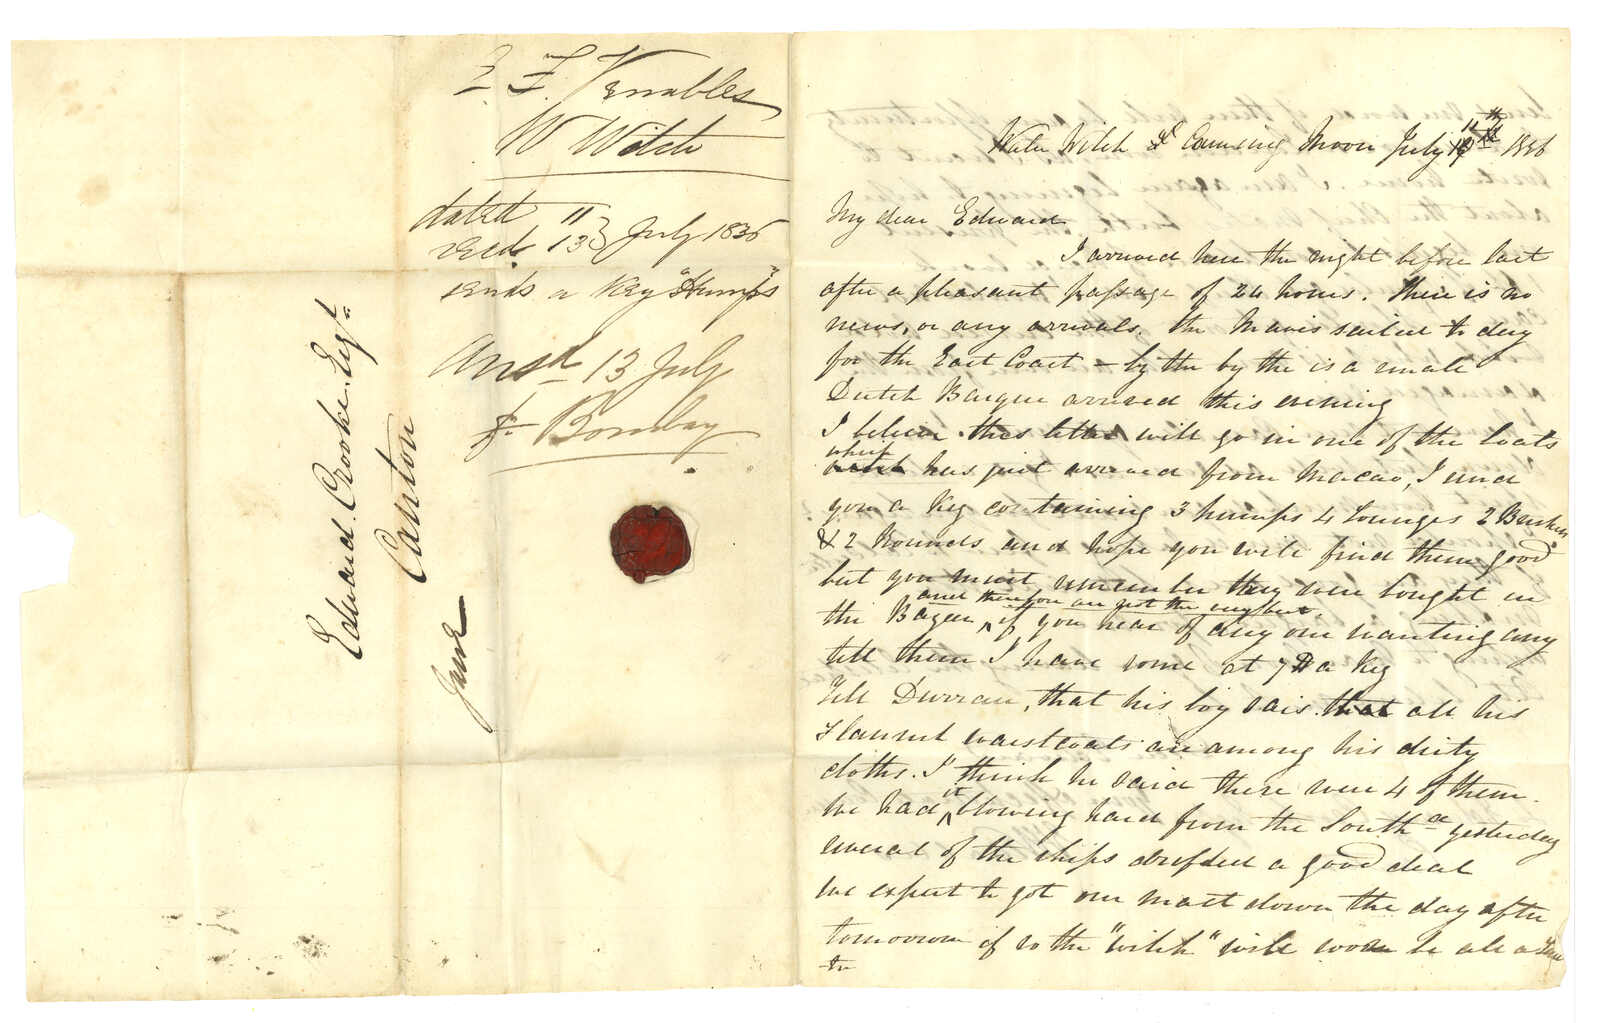 F. Venables
W Witch
dated 11
recd. 13 } July 1836
sends a Keg "Humps"
Ansd 13 July
pr Bombay
Edward. Crooke. Esqr.
Canton
Water Witch Camsing Moon July 11th 1836
My dear Edward
I arrived here the night before last
after a pleasant passage of 24 hours. There is no
news, or any arrivals, the Mavis sailed to day
for the East Coast – by the by the is a small
Dutch Barque arrived this evening
I believe this letter will go in one of the boats
which has just arrived from Macao, I send
you a Keg containing 3 humps 4 Tounges 2 Briskets
& 2 Rounds and hope you will find them good
but you must remember they were bought in
the Bazaar, and therefore are not the very best, if you hear of any one wanting any
tell them I have some at 7 $ a Keg
Tell Durran, that his boy sais that all his
Flannel waistcoats are among his dirty
cloths. I think he said there were 4 of them.
We had it blowing hard from the Southd yesterday
several of the ships drifted a good deal
We expect to got our mast down the day after
tomorrow if so the "witch" will soon be all a
to